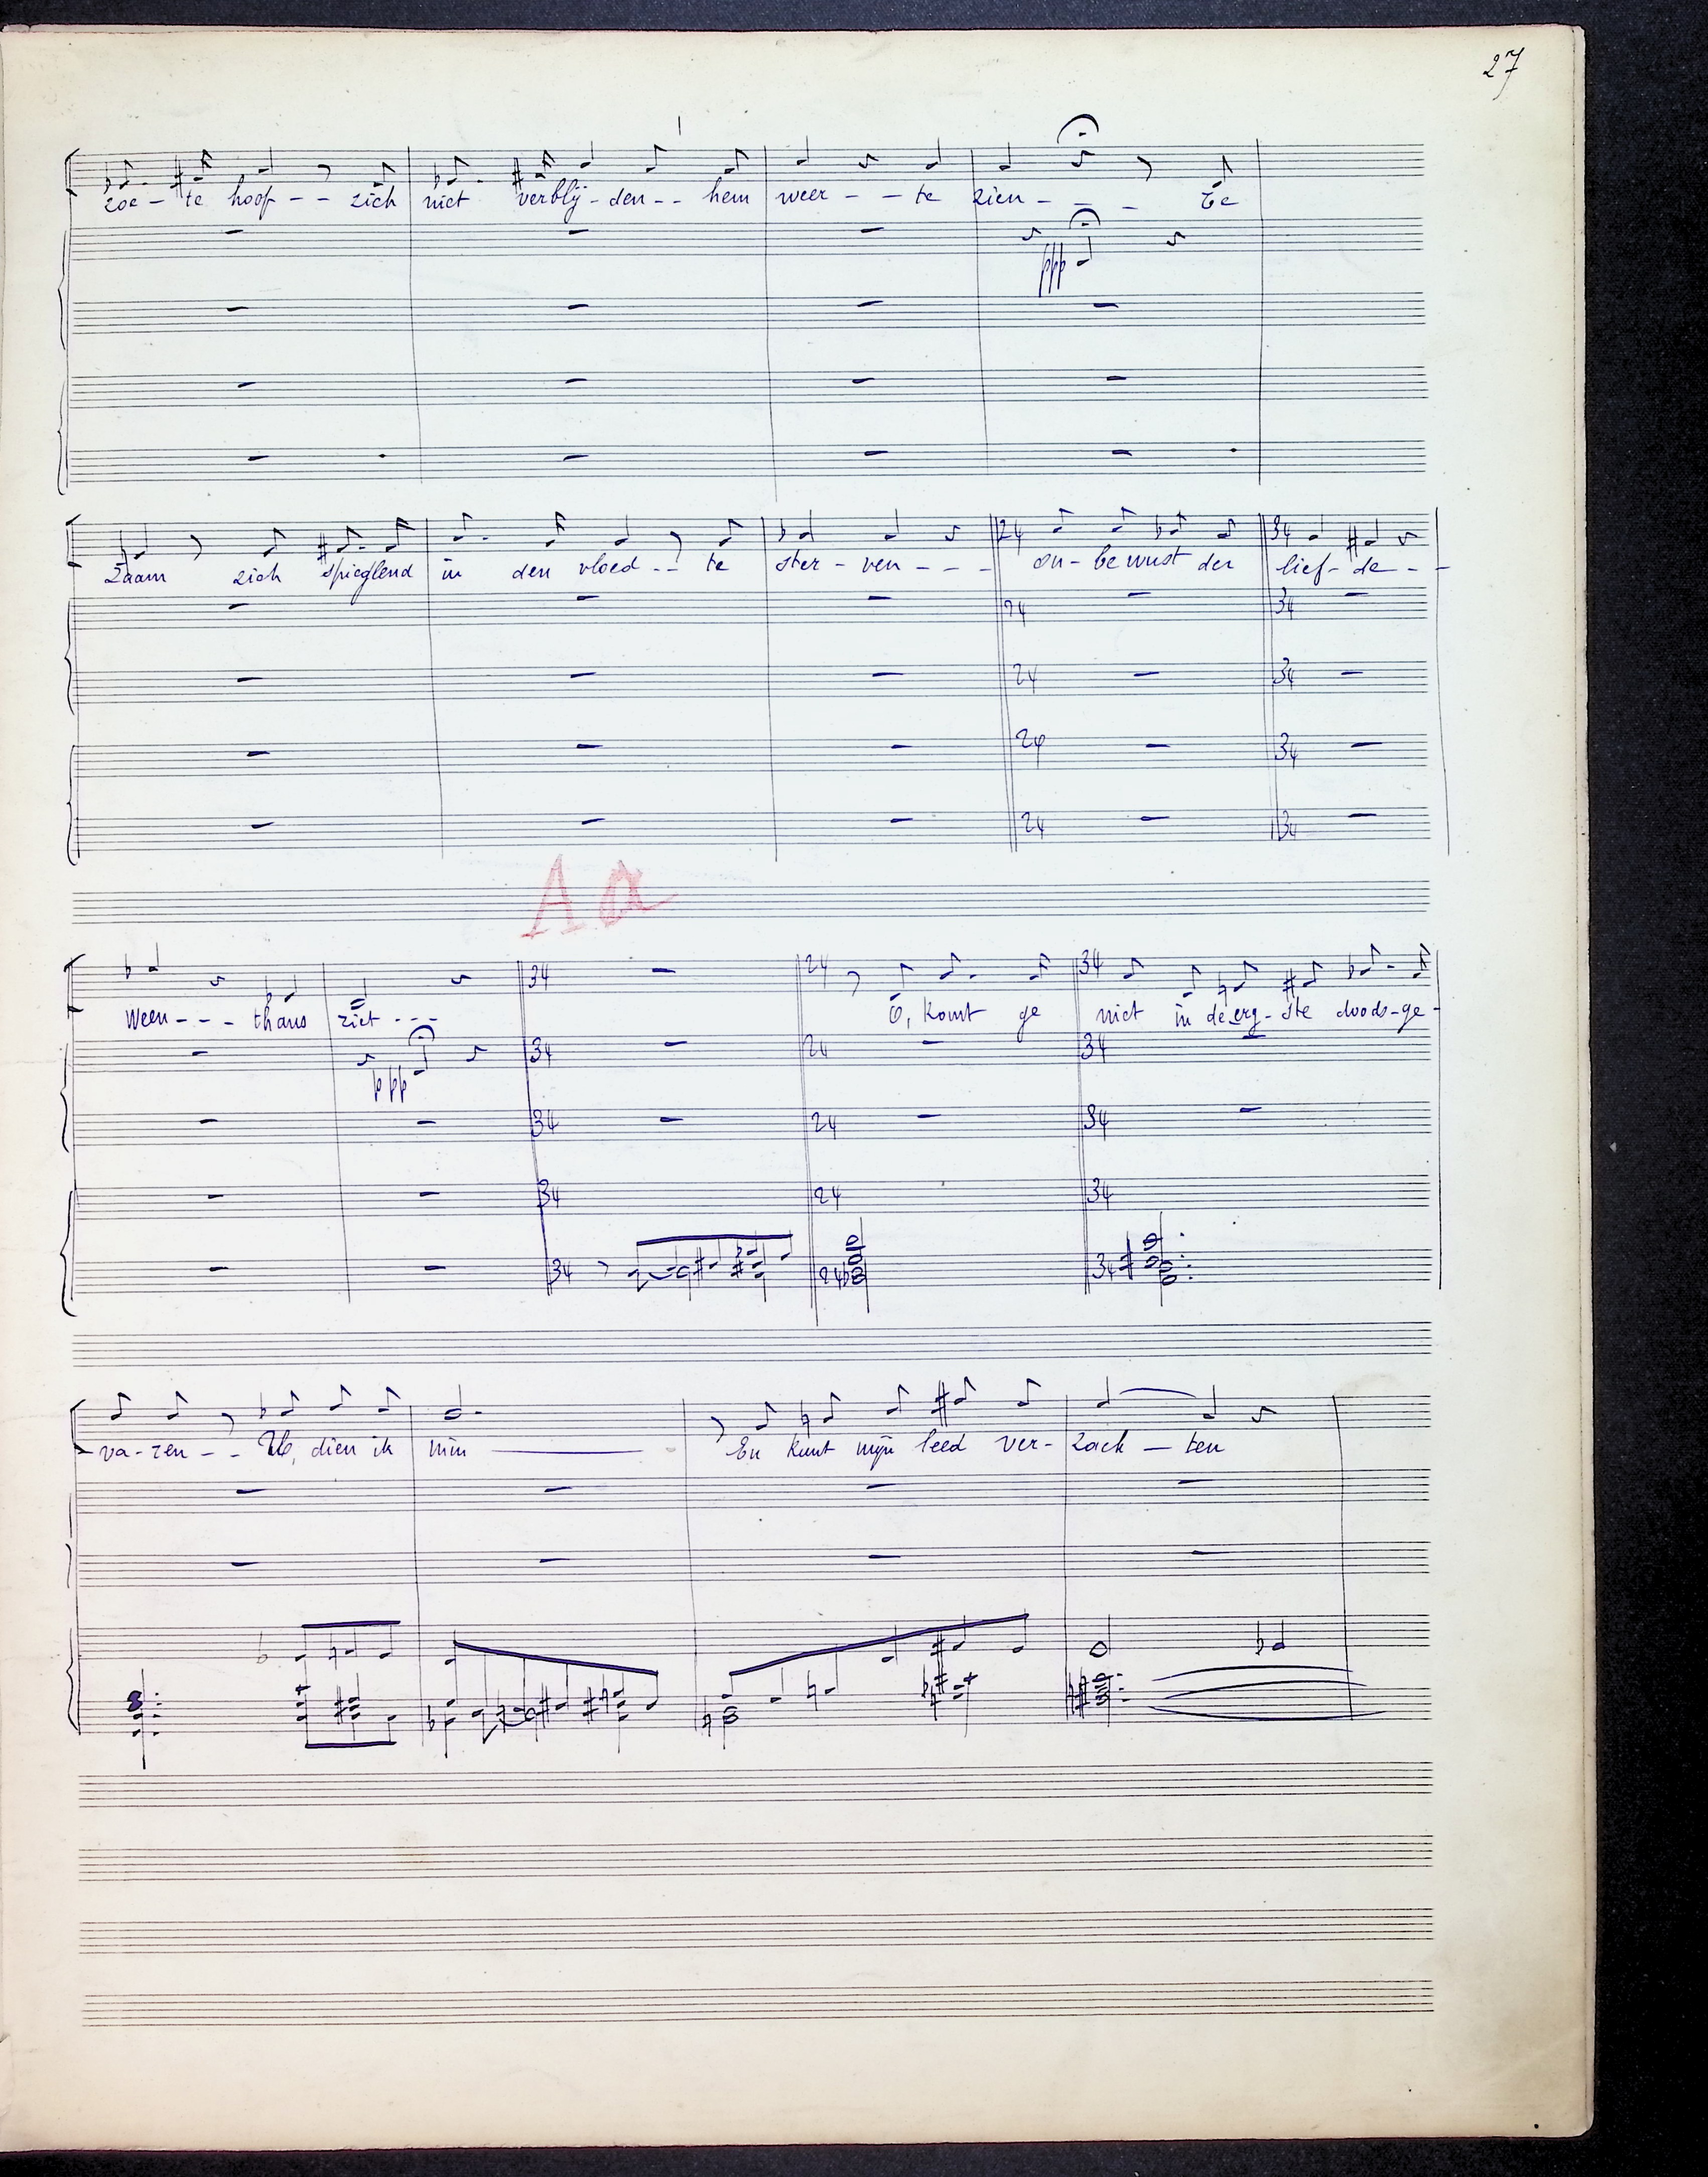 27
zoe - te hoop - - zich niet verblij - den - - hem weer - - te zien - - - Te
ppp
Zaam zich spieglend in den vloed - - te ster - ven - - - on - bewust der lief - de - -
24 34
24 34
24 34
24 34
24 34
A a
Ween - - - thans ziet - - -
34 24 O, komt ge 34 niet in de erg - ste doods - ge -
ppp
34 24 34
34 24 34
34 24 34
34 24 34
- va - ren - - U, dien ik min En kunt mijn leed ver - zach - ten